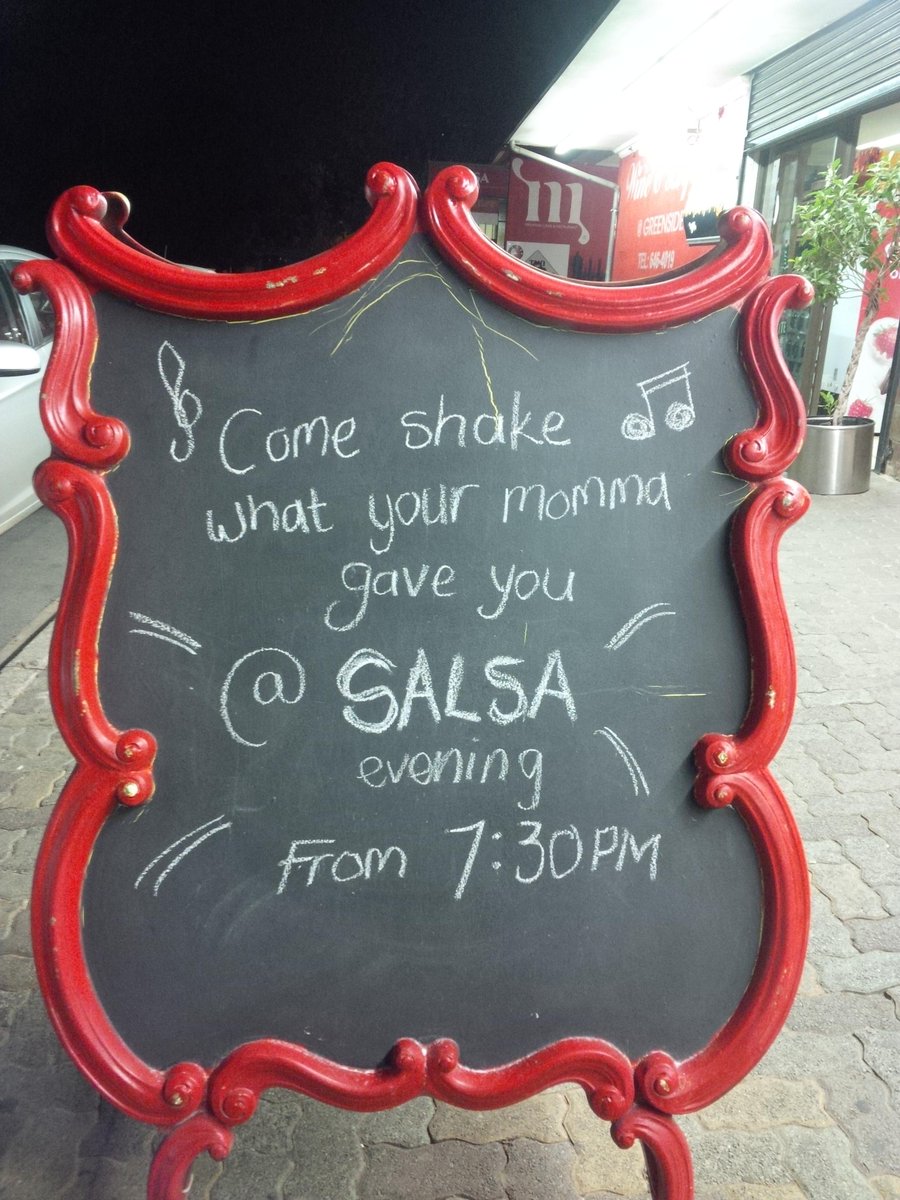 m
@ GREENSIDE
TEL: 646-4019
Come shake
what your momma
gave you
@ SALSA
evening
From 7:30PM